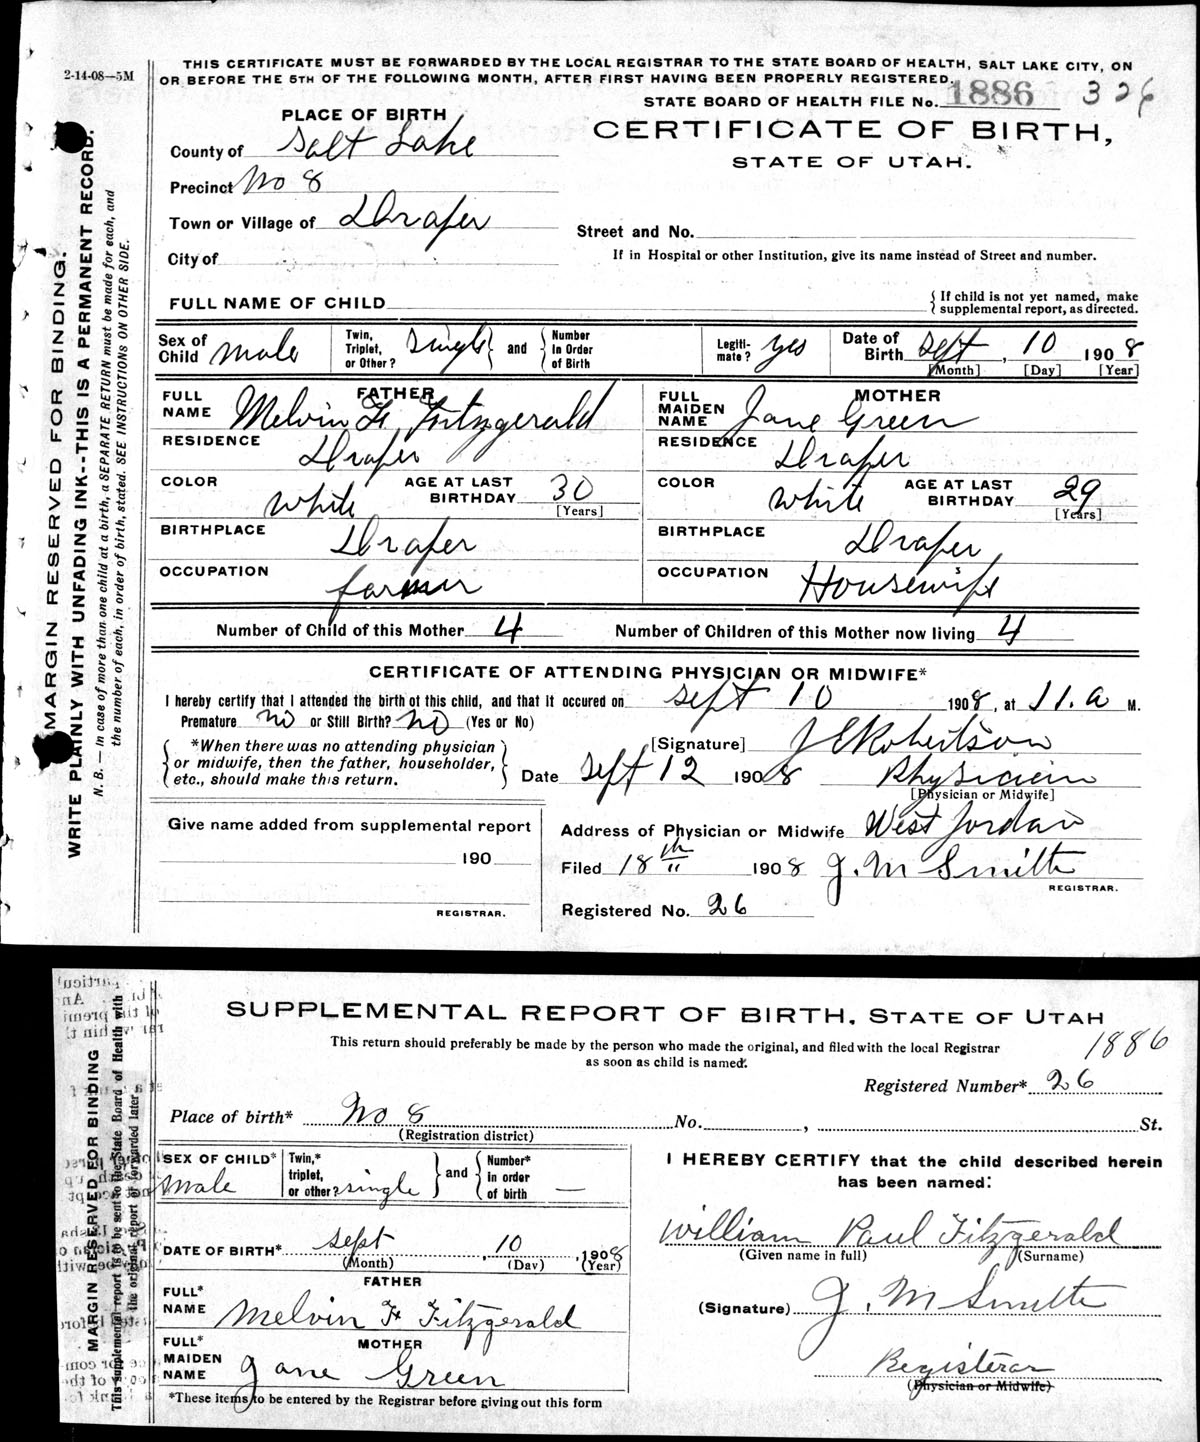 2-14-08—5M
THIS CERTIFICATE MUST BE FORWARDED BY THE LOCAL REGISTRAR TO THE STATE BOARD OF HEALTH, SALT LAKE CITY, ON
OR BEFORE THE 5TH OF THE FOLLOWING MONTH, AFTER FIRST HAVING BEEN PROPERLY REGISTERED.
STATE BOARD OF HEALTH FILE No. 1886 326
PLACE OF BIRTH
CERTIFICATE OF BIRTH,
STATE OF UTAH.
County of Salt Lake
Precinct No 8
Town or Village of Draper
Street and No.
If in Hospital or other Institution, give its name instead of Street and number.
City of
FULL NAME OF CHILD
{ If child is not yet named, make
supplemental report, as directed.
Sex of Child male
Twin, Triplet, or Other? single } and { Number In Order of Birth
Legiti-mate? yes
Date of Birth Sept, 10 1908
[Month] [Day] [Year]
FATHER
FULL NAME Melvin F. Fitzgerald
RESIDENCE Draper
COLOR White AGE AT LAST BIRTHDAY 30
[Years]
BIRTHPLACE Draper
OCCUPATION farmer
MOTHER
FULL MAIDEN NAME Jane Green
RESIDENCE Draper
COLOR White AGE AT LAST BIRTHDAY 29
[Years]
BIRTHPLACE Draper
OCCUPATION Housewife
Number of Child of this Mother 4 Number of Children of this Mother now living 4
CERTIFICATE OF ATTENDING PHYSICIAN OR MIDWIFE*
I hereby certify that I attended the birth of this child, and that it occured on Sept 10 1908, at 11.a M.
Premature no or Still Birth? no (Yes or No)
{ *When there was no attending physician
or midwife, then the father, householder,
etc., should make this return. }
[Signature] J E Robertson
Date Sept 12 1908 Physician
[Physician or Midwife]
Give name added from supplemental report
190
REGISTRAR.
Address of Physician or Midwife West Jordan
Filed 18th 1908 J. M Smith
REGISTRAR.
Registered No. 26
MARGIN RESERVED FOR BINDING.
WRITE PLAINLY WITH UNFADING INK--THIS IS A PERMANENT RECORD.
N. B. — In case of more than one child at a birth, a SEPARATE RETURN must be made for each, and
the number of each, in order of birth, stated. SEE INSTRUCTIONS ON OTHER SIDE.
SUPPLEMENTAL REPORT OF BIRTH, STATE OF UTAH
This return should preferably be made by the person who made the original, and filed with the local Registrar
as soon as child is named.
1886
Registered Number* 26
Place of birth* No 8 No. , St.
(Registration district)
SEX OF CHILD* Male
Twin,* triplet, or other? single } and { Number* in order of birth —
DATE OF BIRTH* Sept, 10, 1908
(Month) (Day) (Year)
FATHER
FULL* NAME Melvin F Fitzgerald
MOTHER
FULL* MAIDEN NAME Jane Green
*These items to be entered by the Registrar before giving out this form
I HEREBY CERTIFY that the child described herein
has been named:
William Paul Fitzgerald
(Given name in full) (Surname)
(Signature) J. M Smith
Registerar
(Physician or Midwife)
MARGIN RESERVED FOR BINDING
This supplemental report is to be sent to the State Board of Health with
the original report or forwarded later.